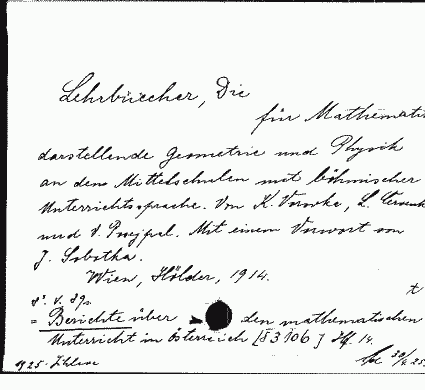 Lehrbücher, Die
für Mathemati
darstellende Geometrie und Physik
an den Mittelschulen mit böhmischer
Unterrichtssprache. Von K. Vorovka, L. Červenk
und V. Posejpal. Mit einem Vorwort von
J. Sobotka.
Wien, Hölder, 1914.
8°. V. 89 S.
= Berichte über den mathematischen
Unterricht in Österreich [83106] Hft 14.
1925.